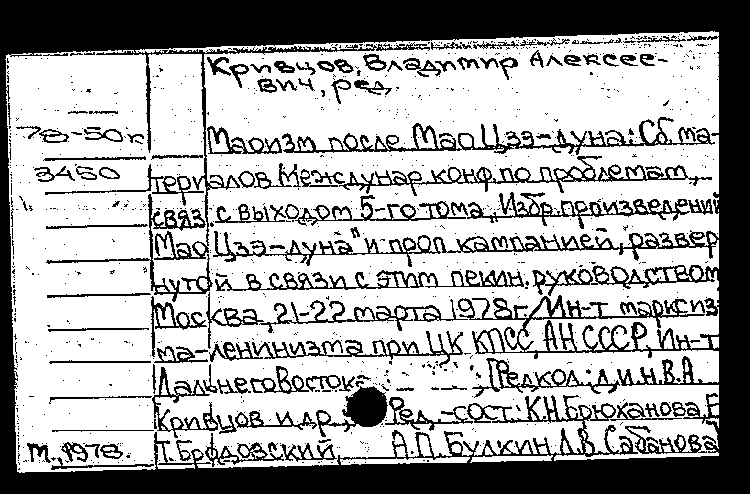 Кривцов, Владимир Алексее-
вич, ред.
78-50к
Маоизм после Мао Цзэ-дуна: Сб. ма-
3450
териалов Междунар. конф. по проблемам,
связ. с выходом 5-го тома „Избр. произведений
Мао Цзэ-дуна" и проп. кампанией, развер-
нутой в связи с этим пекин. руководством
Москва, 21-22 марта 1978г. / Ин-т марксиз-
ма-ленинизма при ЦК КПСС, АН СССР, Ин-т
Дальнего Востока ; [Редкол.: д.и.н. В.А.
Кривцов и др.; Ред.-сост.: К.Н. Брюханова, Е
М., 1978.
Т. Бродовский, А.П. Булкин, Л.В. Сабанова]